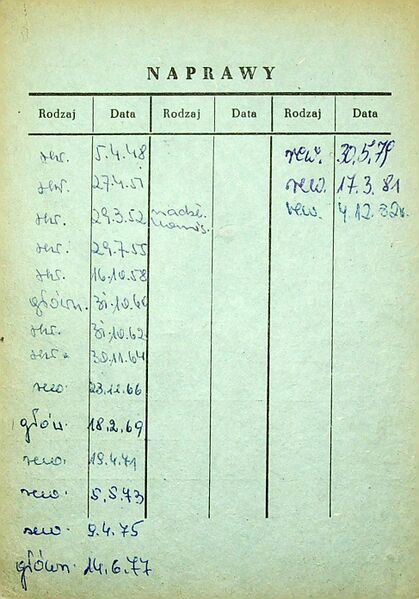 NAPRAWY
Rodzaj Data Rodzaj Data Rodzaj Data
śr. 5.4.48 rew. 30.5.79
śr. 27.4.51 rew. 17.3.81
śr. 29.3.52 rew. 4.12.82r.
śr. 29.7.55
śr. 16.10.58
główn. 31.10.60
śr. 31.10.62
śr. 30.11.64
rew. 23.12.66
głów. 18.2.69
rew. 19.4.71
rew. 5.5.73
rew. 9.4.75
główn. 14.6.77